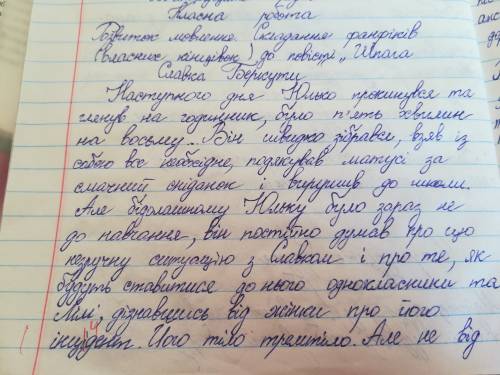 Класна робота
Розвиток мовлення (складання фанфіків
(власних кінцівок) до повісті „Шпага
Славка Беркути
Наступного дня Юлько прокинувся та
глянув на годинник, було п'ять хвилин
на восьму... Він швидко зібрався, взяв із
собою все необхідне, подякував матусі за
смачний сніданок і вирушив до школи.
Але бідолашному Юльку було зараз не
до навчання, він постійно думав про цю
незручну ситуацію з Славком і про те, як
будуть ставитися до нього однокласники та
Лілі, дізнавшись від жінки про його
інцидент. Його тіло тремтіло. Але не від